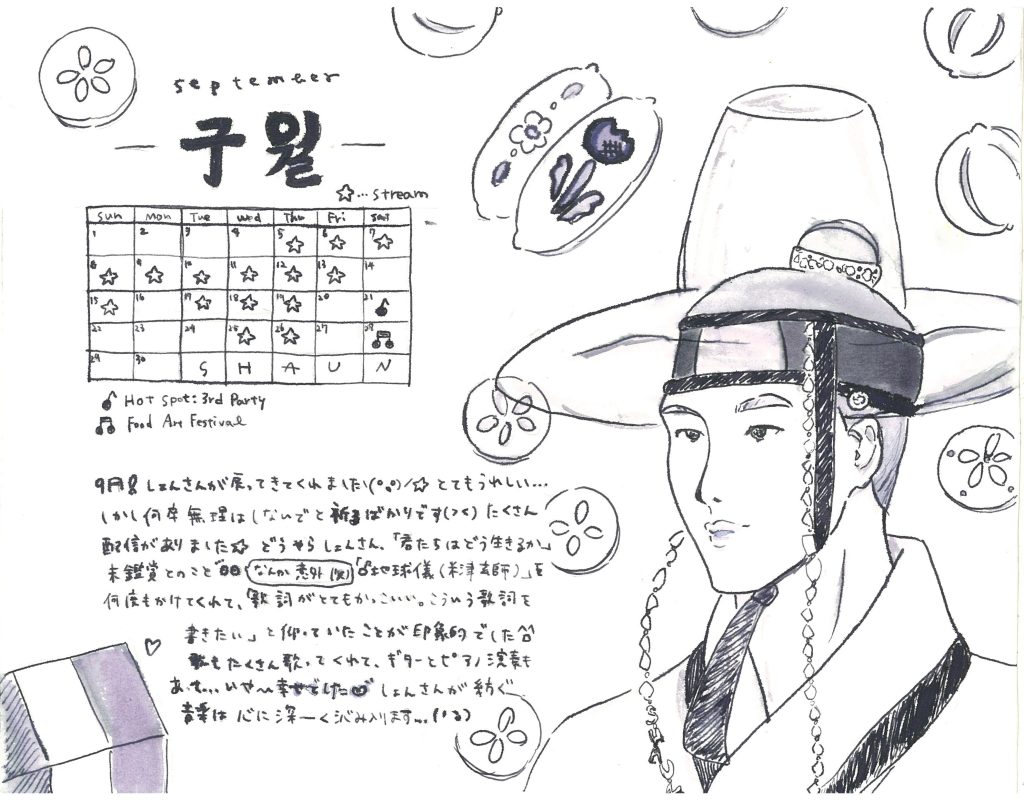 september
구월
☆…stream
Sun Mon Tue Wed Thu Fri Sat
1 2 3 4 5☆ 6☆ 7☆
8☆ 9☆ 10☆ 11☆ 12☆ 13☆ 14
15☆ 16 17☆ 18☆ 19☆ 20 21♪
22 23 24 25☆ 26☆ 27 28♫
29 30 S H A U N
♪ Hot Spot: 3rd Party
♫ Food Art Festival
9月! しょんさんが戻ってきてくれました!(°ᴗ°)/☆ とてもうれしい…
しかし何卒無理はしないでと祈るばかりです(つく) たくさん
配信がありました☆ どうやらしょんさん、「君たちはどう生きるか」
未鑑賞とのこと なんか意外(笑) 「地球儀(米津玄師)」を
何度もかけてくれて、「歌詞がとてもかっこいい。こういう歌詞を
書きたい」と仰っていたことが印象的でした
歌もたくさん歌ってくれて、ギターとピアノ演奏も
あって…いや〜幸せでした しょんさんが紡ぐ
音楽は心に深ーく沁み入ります…